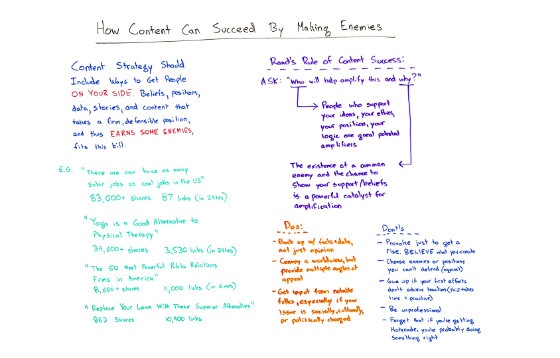 How Content Can Succeed By Making Enemies
Content Strategy Should
Include Ways to Get People
ON YOUR SIDE. Beliefs, positions,
data, stories, and content that
takes a firm, defensible position,
and thus EARNS SOME ENEMIES,
fits this bill.
E.G. "There are now twice as many
Solar jobs as coal jobs in the US"
83,000+ shares 87 links (in 24hrs)
"Yoga is a Good Alternative to
Physical Therapy"
34,600+ shares 3,530 links (in 24hrs)
"The 50 Most Powerful Public Relations
Firms in America"
8,600+ shares
"Replace Your Lawn With These Superior Alternatives"
862 shares 10,900 links
Rand's Rule of Content Success:
ASK: "Who will help amplify this and why?"
People who support
your ideas, your ethics,
your position, your
logic are good potential
amplifiers
The existence of a common
enemy and the chance to
show your support/beliefs
is a powerful catalyst for
amplification
Dos:
- Back up w/ facts+data,
not just opinion
- Convey a worldview, but
provide multiple angles of appeal
- Get input from notable
folks, especially if your
issue is socially, culturally,
or politically charged
Don'ts
- Provoke just to get a
rise. BELIEVE what you create
- Choose enemies or positions
you can't defend (against)
- Give up if your first efforts
don't achieve traction (this takes
time + practice)
- Be unprofessional
- Forget that if you're getting
Haterade, you're probably doing
something right